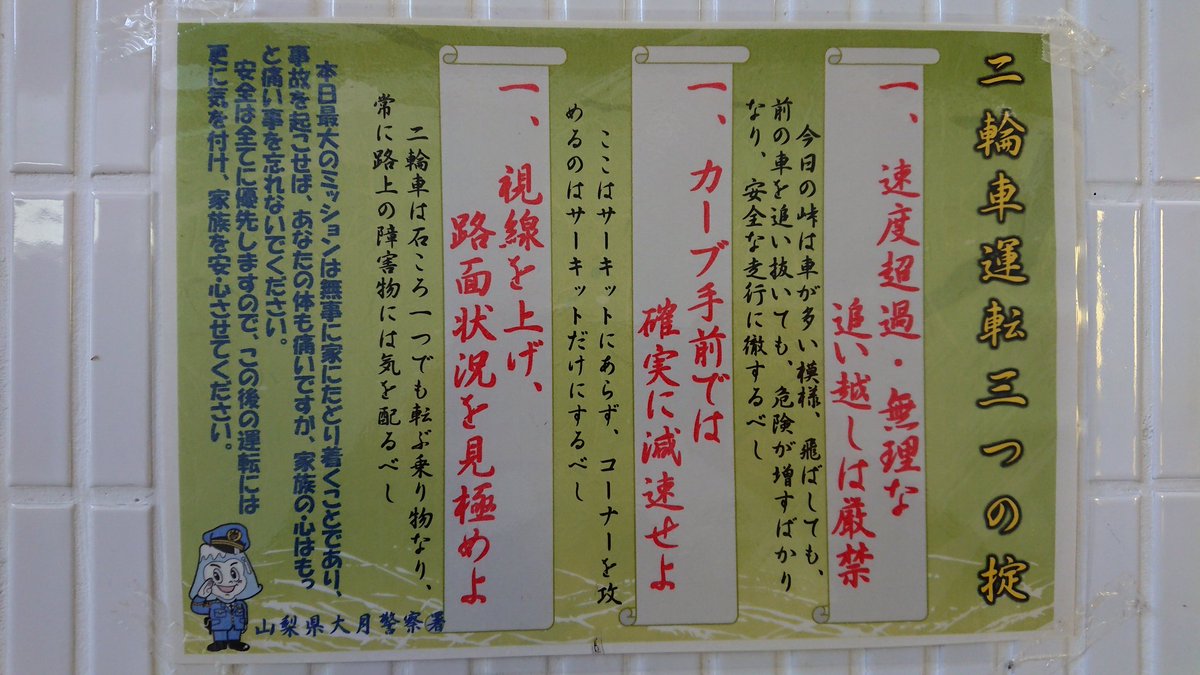 二輪車運転三つの掟
一、速度超過・無理な
追い越しは厳禁
今日の峠は車が多い模様、飛ばしても、
前の車を追い抜いても、危険が増すばかり
なり、安全な走行に徹するべし
一、カーブ手前では
確実に減速せよ
ここはサーキットにあらず、コーナーを攻
めるのはサーキットだけにするべし
一、視線を上げ、
路面状況を見極めよ
二輪車は石ころ一つでも転ぶ乗り物なり、
常に路上の障害物には気を配るべし
本日最大のミッションは無事に家にたどり着くことであり、
事故を起こせば、あなたの体も痛いですが、家族の心はもっ
と痛い事を忘れないでください。
安全は全てに優先しますので、この後の運転には
更に気を付け、家族を安心させてください。
山梨県大月警察署